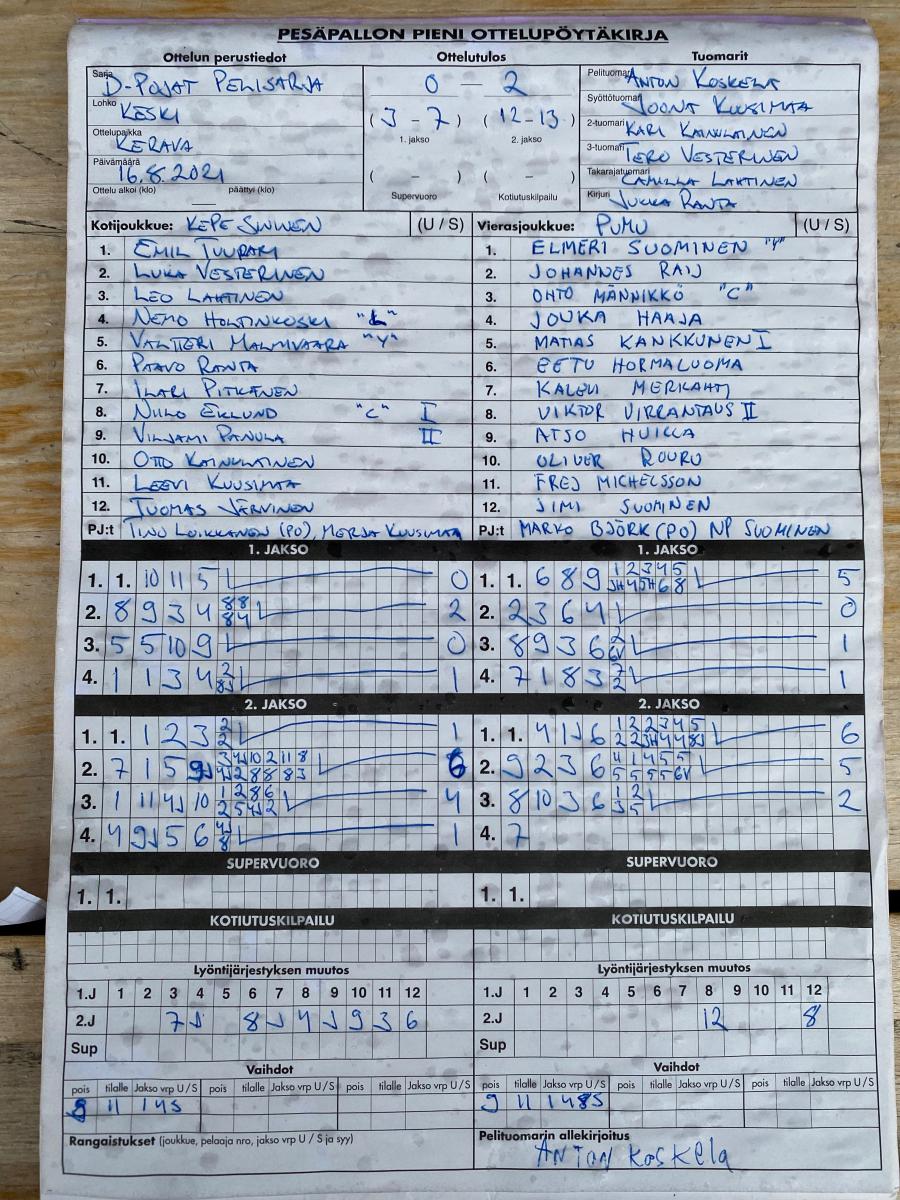 PESÄPALLON PIENI OTTELUPÖYTÄKIRJA
Ottelun perustiedot
Sarja D-POJAT PELISARJA
Lohko KESKI
Ottelupaikka KERAVA
Päivämäärä 16.8.2021
Ottelu alkoi (klo) — päättyi (klo)
Ottelutulos
0 — 2
(3 - 7) (12-13)
1. jakso 2. jakso
( - ) ( - )
Supervuoro Kotiutuskilpailu
Tuomarit
Pelituomari ANTON KOSKELA
Syöttötuomari JOONA KUUSIMAA
2-tuomari KARI KAINULAINEN
3-tuomari TERO VESTERINEN
Takarajatuomari CAMILLA LAHTINEN
Kirjuri JUKKA RANTA
Kotijoukkue: KEPE SININEN (U / S)
1. EMIL TUURAKI
2. LUKA VESTERINEN
3. LEO LAHTINEN
4. NEMO HOLTINKOSKI "L"
5. VALTTERI MALMIVAARA "Y"
6. PAAVO RANTA
7. ILARI PITKÄNEN
8. NIILO EKLUND "C" I
9. VILJAMI PANULA II
10. OTTO KAINULAINEN
11. LEEVI KUUSIMAA
12. TUOMAS JÄRVINEN
PJ:t TINO LOIKKANEN (PO), MERJA KUUSIMAA
Vierasjoukkue: PUMU (U / S)
1. ELMERI SUOMINEN "Y"
2. JOHANNES
3. OHTO MÄNNIKKÖ "C"
4. JOUKA HAAJA
5. MATIAS KANKKUNEN I
6. EETU HORMALUOMA
7. KALEVI MERKAHTI
8. VIKTOR VIRRANTAUS II
9. ATSO
10. OLIVER ROURU
11. FREJ MICHELSSON
12. JIMI SUOMINEN
PJ:t MARKO BJÖRK (PO) NP SUOMINEN
1. JAKSO
1. 1. 10 11 5 0
2. 8 9 3 4 88 84 2
3. 5 5 10 9 0
4. 1 1 3 4 2 8J 1
1. JAKSO
1. 1. 6 8 9 1 2 3 4 5 3H 4 5H 6 8 5
2. 2 3 6 4 0
3. 8 9 3 6 2 6V 1
4. 7 1 8 3 7 2 1
2. JAKSO
1. 1. 1 2 3 2 2 1
2. 7 1 5 9J 3 4J 10 2 11 8 4J 2 8 8 8 3 6
3. 1 11 4J 10 1 2 8 6 2 5 4J 2 4
4. 4 9J 5 6 4J 8 1
2. JAKSO
1. 1. 4 1J 6 1 2 2 3 4 5 2 2 3H 4 4 8J 6
2. 9 2 3 6 4 1 4 5 5 5 5 5 5 6V 5
3. 8 10 3 6 1 2 3 5 2
4. 7
SUPERVUORO
1. 1.
SUPERVUORO
1. 1.
KOTIUTUSKILPAILU
KOTIUTUSKILPAILU
Lyöntijärjestyksen muutos
1.J 1 2 3 4 5 6 7 8 9 10 11 12
2.J 7 J 8 J 4 J 9 3 6
Sup
Lyöntijärjestyksen muutos
1.J 1 2 3 4 5 6 7 8 9 10 11 12
2.J 12 8
Sup
Vaihdot
pois tilalle Jakso vrp U / S pois tilalle Jakso vrp U / S pois tilalle Jakso vrp U / S
8 11 1 4 S
Vaihdot
pois tilalle Jakso vrp U / S pois tilalle Jakso vrp U / S pois tilalle Jakso vrp U / S
9 11 1 4 8 S
Rangaistukset (joukkue, pelaaja nro, jakso vrp U / S ja syy)
Pelituomarin allekirjoitus
ANTON KOSKELA